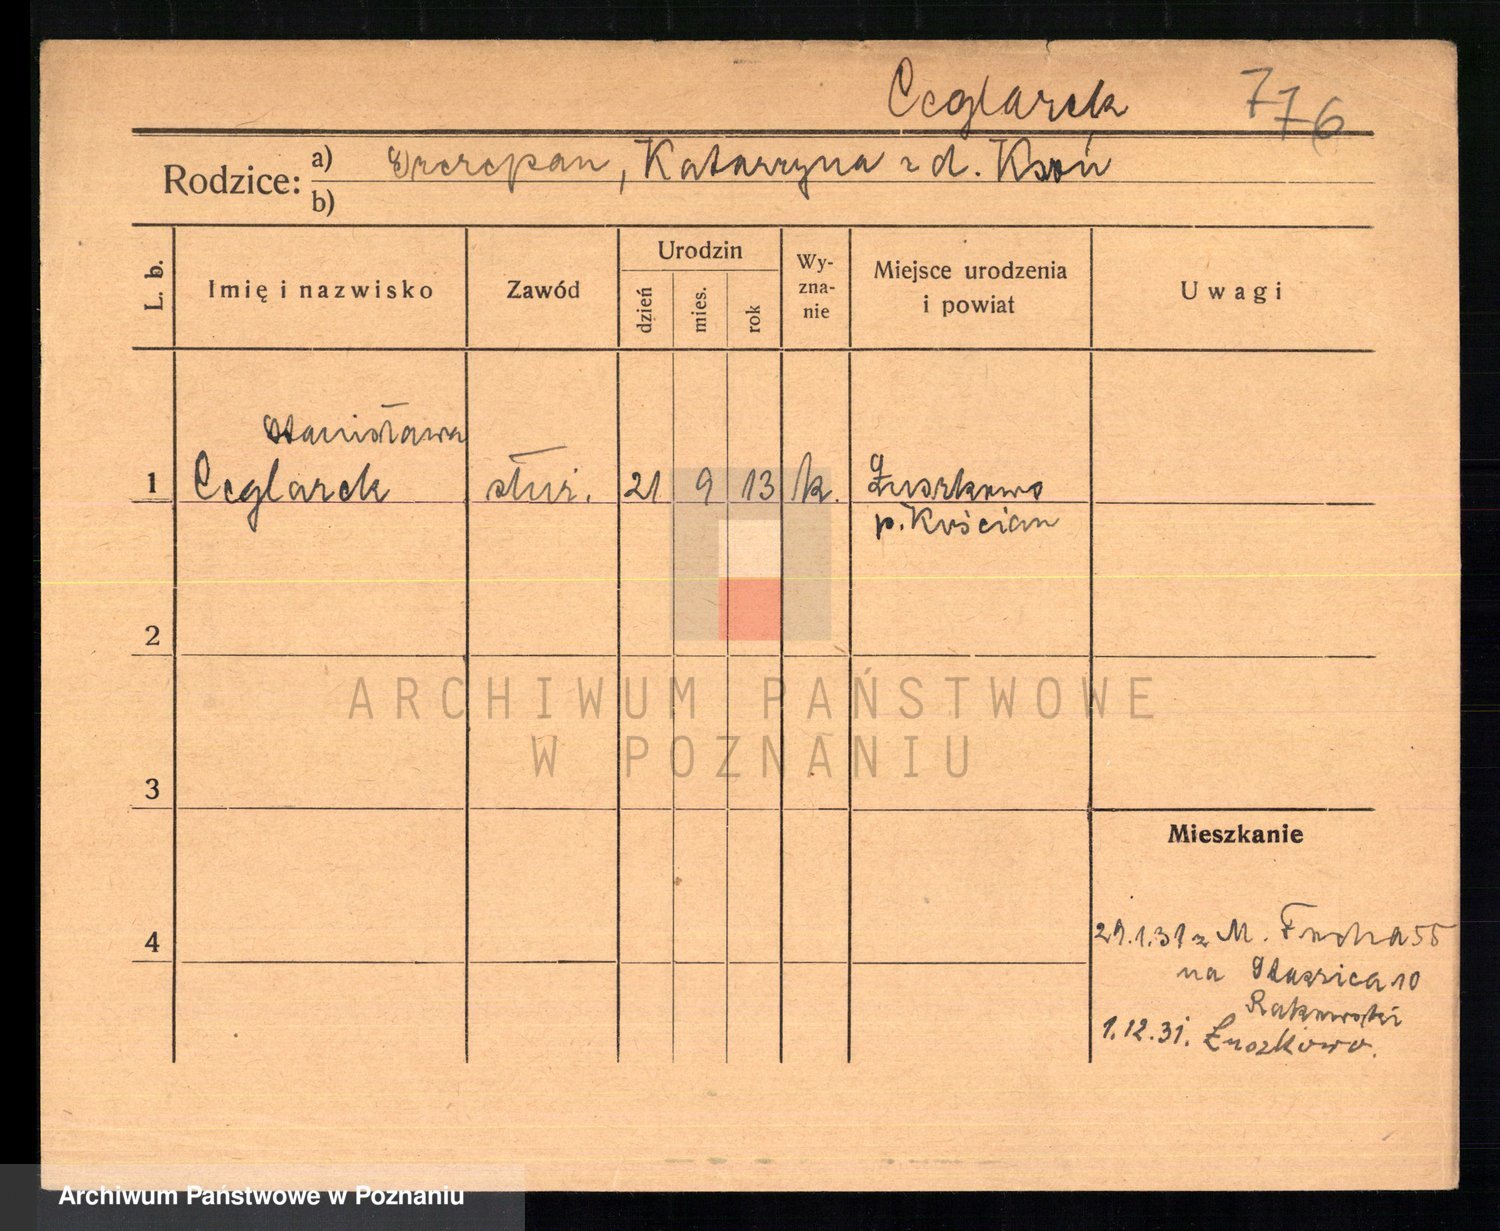 Ceglarek 776
Rodzice: a) Szczepan, Katarzyna z d. Ksoń
b)
L. b.
Imię i nazwisko
Zawód
Urodzin
dzień
mies.
rok
Wy-
zna-
nie
Miejsce urodzenia
i powiat
Uwagi
Stanisława
1 Ceglarek służ. 21 9 13 k. Łuszkowo
p. Kościan
2
3
4
Mieszkanie
29.1.31 z M. Focha 55
na Staszica 10
Rakowski
1.12.31. Łuszkowo.
ARCHIWUM PAŃSTWOWE
W POZNANIU
Archiwum Państwowe w Poznaniu